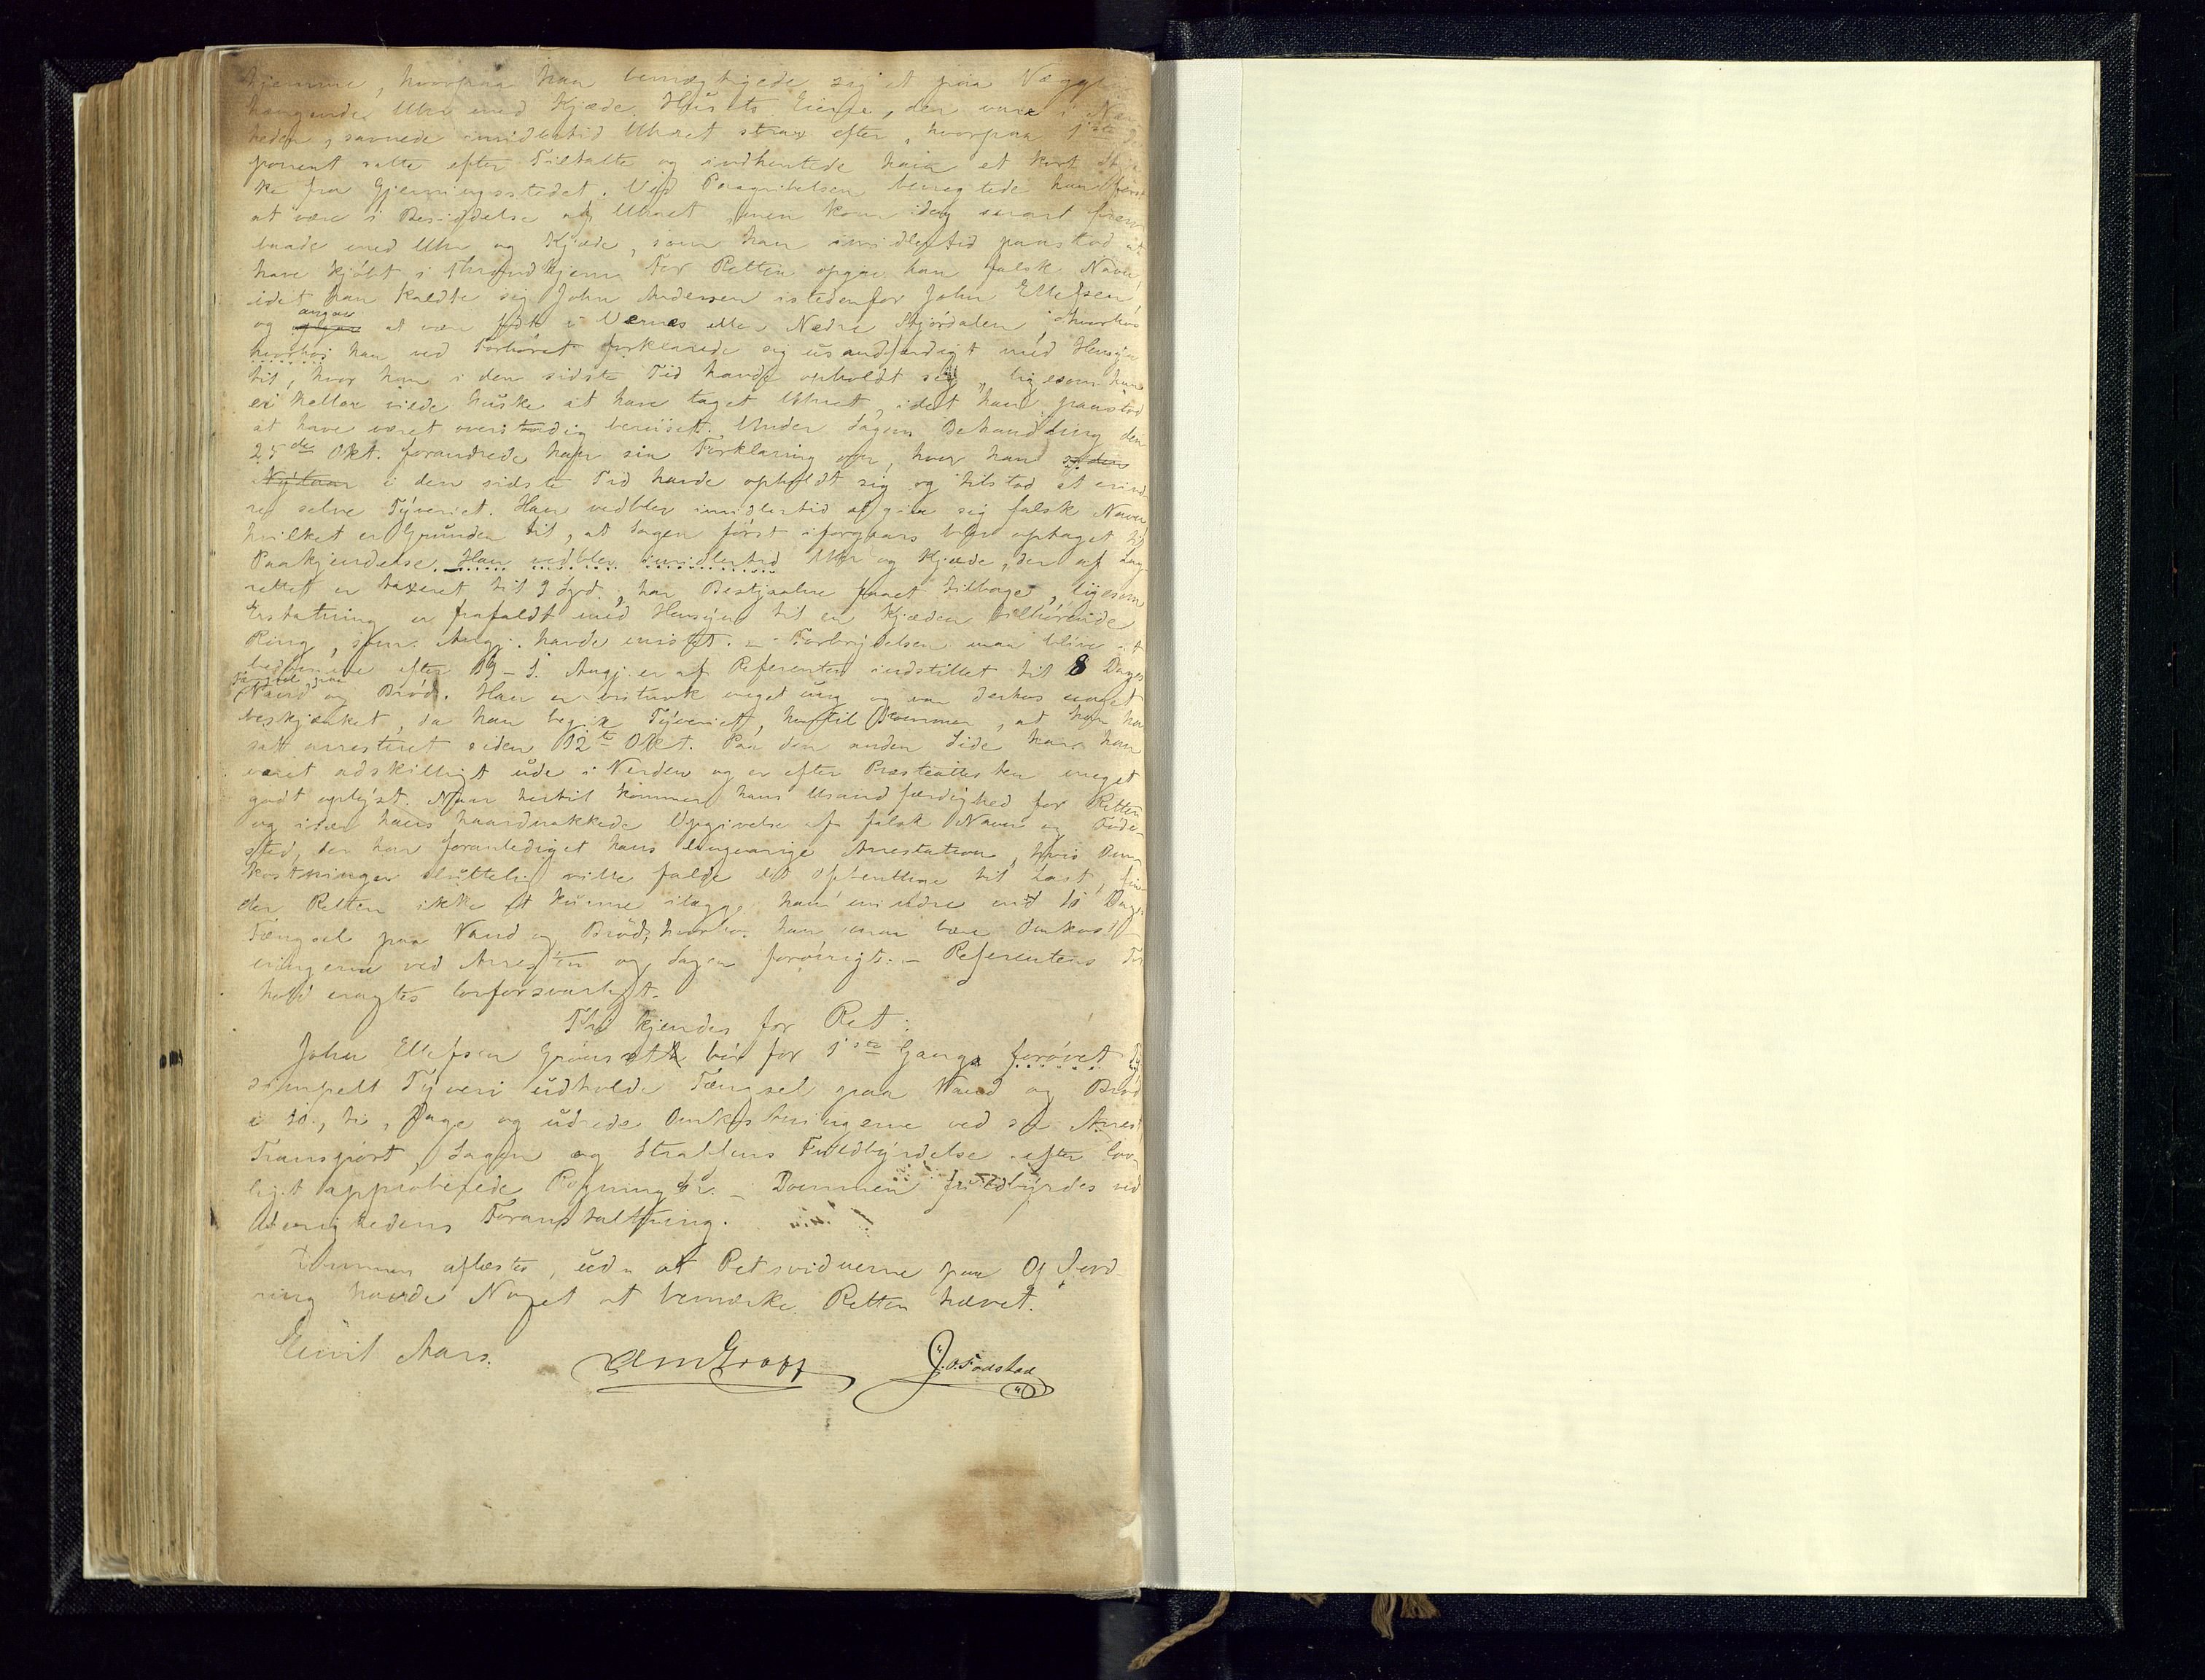 hjemme, hvorpaa han bemægtigede sig et paa Vægg
hængende Uhr med Kjæde. Husets Eierne, der vare i Nær
heden, savnede imidlertid Uhret strax efter, hvorpaa 1ste
ponent satte efter Tiltalte og indhentede ham et kort
ke fra Gjerningsstedet. Ved Paagribelsen benegtede han først
at være i Besiddelse af Uhret, men kom snart frem
baade med Uhr og Kjæde, som han imidlertid paastod at
have kjöbt i Throndhjem. For Retten opgav han falsk Navn,
idet han kaldte sig John Andersen istedenfor John Ellefsen,
og angav at være född i Vernes eller Nedre Stjördalen, hvorhos
hvorhos han ved Forhöret forklarede sig usandfærdigt med Hensyn
til, hvor han i den sidste Tid havde opholdt sig, ligesom han
ei heller vilde huske at have taget Uhret, idet han paastod
at have været overstadig beruset. Under Sagens Behandling den
25de Okt. forandrede han sin Forklaring om, hvor han siden
Nytaar i den sidste Tid havde opholdt sig og tilstod at erind
re selve Tyveriet. Han vedblev imidlertid at give sig falsk Navn
hvilket er Grunden til, at Sagen först iforgaars blev optaget til
Paakjendelse. Han vedblev imidlertid Uhr og Kjæde, der af Lag
rettet er taxeret til 9 , har Bestjaalne faaet tilbage, ligesom
Erstatning er frafaldt med Hensyn til en Kjæden tilhörende
Ring, som Angj. havde mistet. – Forbrydelsen maa blive at
bedömme efter 19-1. Angj. er af Referenten indstillet til 8 Dages
Fængsel paa
Vand og Bröd. Han er vistnok meget ung og var derhos noget
beskjænket, da han begik Tyveriet, hertil kommer, at han har
satt arresteret siden 12te Okt. Paa den anden Side har han
været adskilligt ude i Verden og er efter Præsteattesten meget
godt oplyst. Naar hertil kommer hans Usandfærdighed for Retten
og især hans haardnakkede Opgivelse af falsk Navn og Föde-
sted, der har foranlediget hans langvarige Arrestation, hvis Om-
kostninger sluttelig ville falde det Offentlige til Last, fin-
der Retten ikke at kunne ilægge ham mindre end 10 Dages
Fængsel paa Vand og Bröd, hvorhos han maa bære Omkost
ningerne ved Arresten og Sagen forövrigt. – Referentens For
hold eragtes lovforsvarligt.
Thi kjendes for Ret:
John Ellefsen Grönseth bör for 1ste Gang forövet
simpelt Tyveri udholde Fængsel paa Vand og Bröd
i 10, ti, Dage og udrede Omkostningerne ved sin Arrest
Transport, Sagen og Straffens Fuldbyrdelse efter lov-
ligt approberede Regninger. – Dommen fuldbyrdes ved
Övrighedens Foranstaltning.
Dommen aflæstes, uden at Retsvidnerne paa Opford-
ring havde Noget at bemærke. Retten hævet.
Emil Aars.
J. O. Fodstad